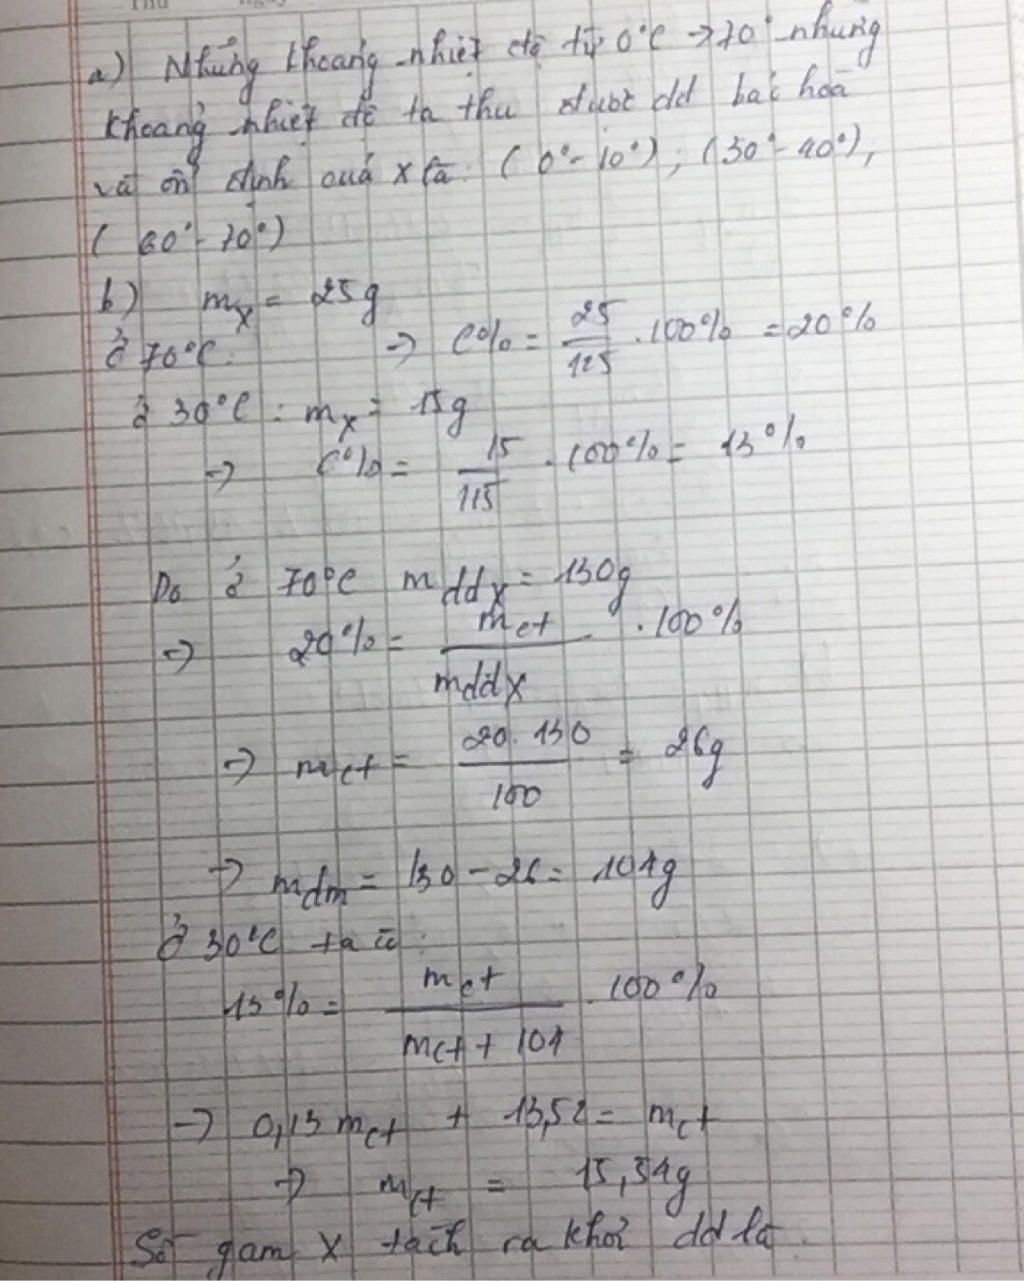 a) Những khoảng nhiệt độ từ 0°C → 70° những
khoảng nhiệt độ ta thu được dd bão hoà
và ổn định của x là: (0° - 10°); (30° - 40°),
(60° - 70°)
b) m_x = 25g
ở 70°C: → C% = 25/125 . 100% = 20%
ở 30°C: m_x = 15g
→ C% = 15/115 . 100% = 13%
Do ở 70°C m ddx = 130g
→ 20% = mct/mddx . 100%
→ mct = 20.130/100 = 26g
→ mdm = 130 - 26 = 104g
ở 30°C ta có:
13% = mct/(mct + 104) . 100%
→ 0,13 mct + 13,52 = mct
→ mct = 15,54g
Số gam X tách ra khỏi dd là